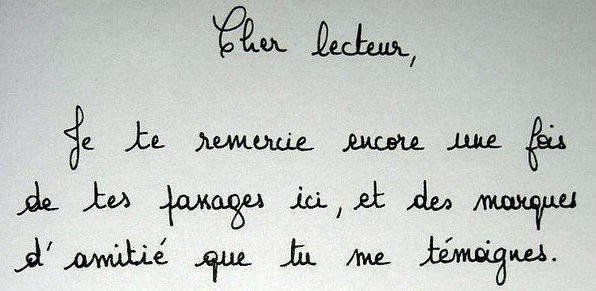 Cher lecteur,
Je te remercie encore une fois
de tes passages ici, et des marques
d'amitié que tu me témoignes.